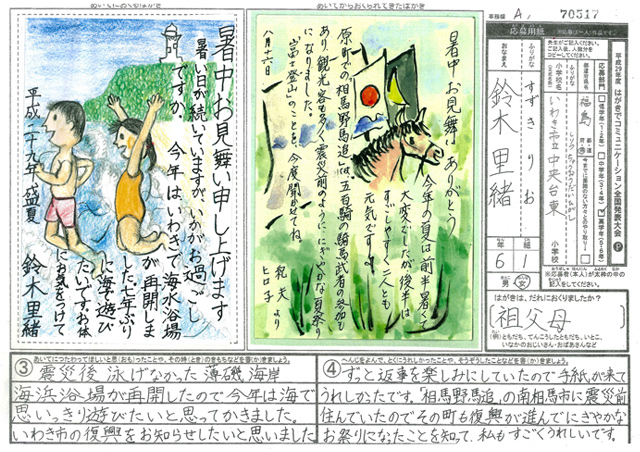 あいてからおくられてきたはがき
整理番号 A, 70517
暑中お見舞い申し上げます
暑い日が続いていますが、いかがお過ごし
ですか。今年は、いわきで海水浴場
が再開しま
した。七年ぶり
に海で遊び
たいです。お体
にお気をつけて
平成二十九年 盛夏
鈴木里緒
暑中お見舞い ありがとう
今年の夏は前半暑くて
大変でしたが後半は
すごしやすく二人とも
元気ですよ。
原町での「相馬野馬追」には、五百騎の騎馬武者の参加も
あり、観光客も多く、震災前のように、にぎやかな夏祭り
になりました。
「富士登山」のことも、今度聞かせてね。
八月十六日
ヒロ子 より
応募用紙
平成29年度 はがきでコミュニケーション全国発表大会
応募部門
低学年(1・2年)
中学年(3・4年)
高学年(5・6年)
ふりがな
おなまえ
すずきりお
鈴木里緒
小学校名
福島
いわき市立中央台東
小学校
6年
1組
男・女
はがきは、だれにおくりましたか?
祖父母
(例)ともだち、てんこうしたともだち、いとこ、
いなかのおじいさん・おばあさんなど
③ 震災後泳げなかった薄磯海岸
海浜浴場が再開したので今年は海で
思いっきり遊びたいと思ってかきました。
いわき市の復興をお知らせしたいと思いました
④ ずっと返事を楽しみにしていたので手紙が来て
うれしかったです。「相馬野馬追」の南相馬市に震災前
住んでいたのでその町も復興が進んでにぎやかな
お祭りになったことを知って、私もすごくうれしいです。